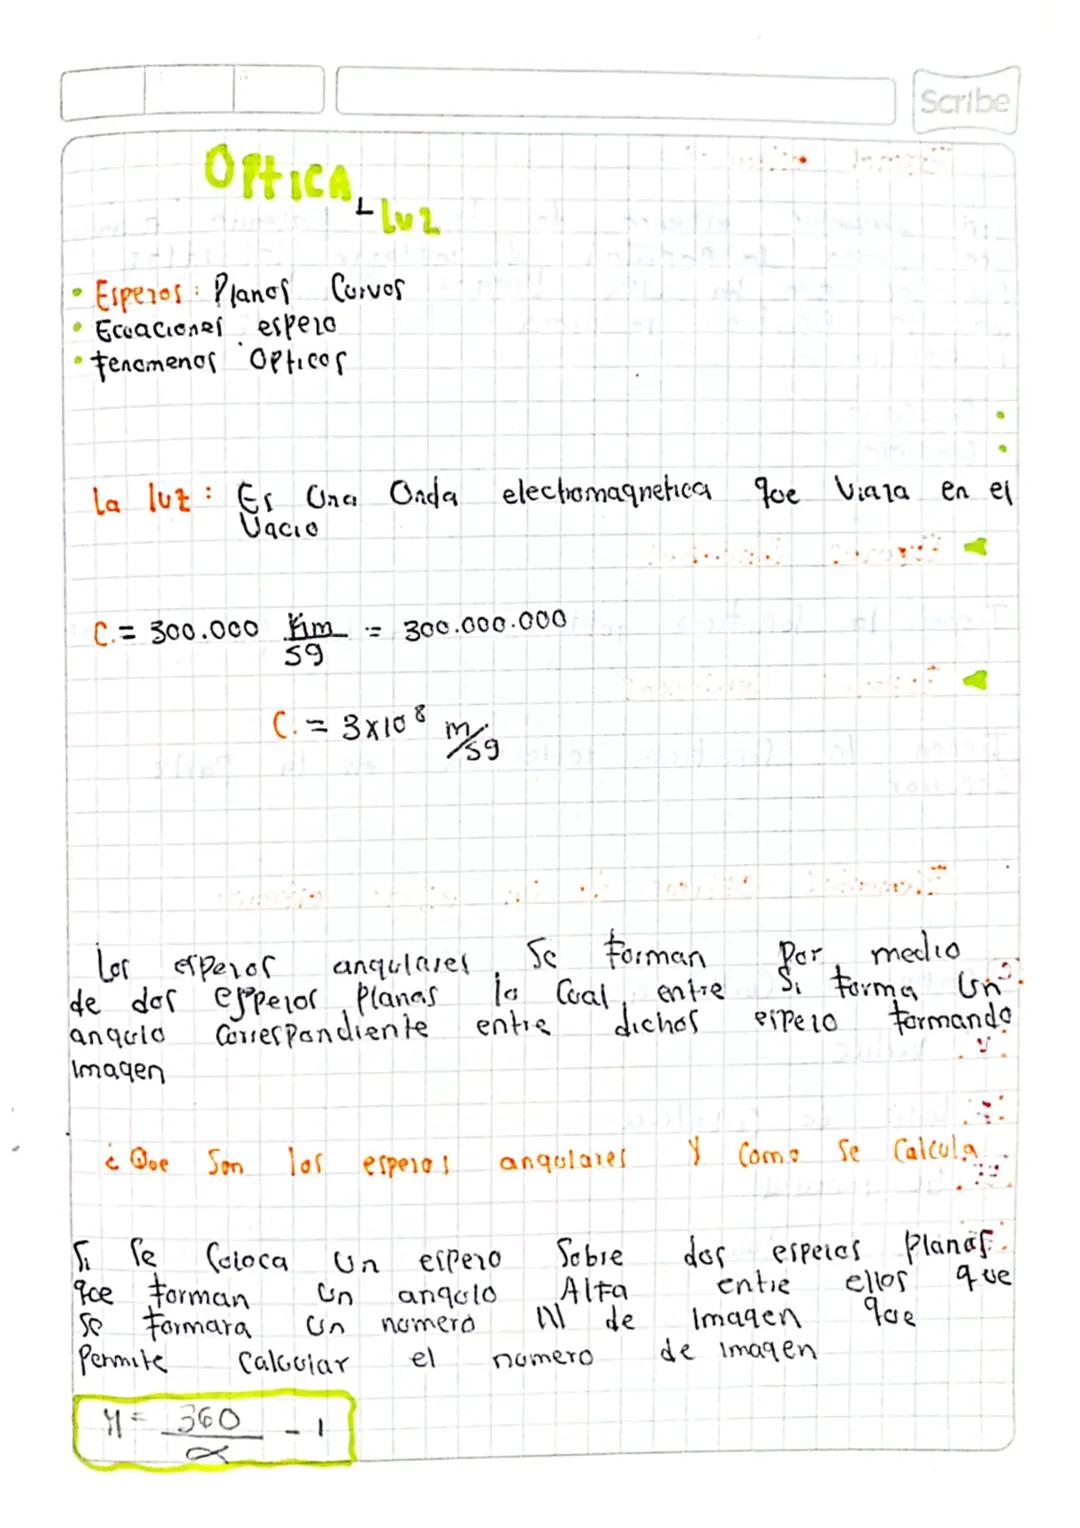 Scribe
OPtICA
luz
• Esperos: Planos Curvos
• Ecuaciones espero
• fenomenos Opticos
la luz: Es Una Onda electromagnetica que Viaza en el
Vacio
C.= 300.000 Km/sg = 300.000.000
C. = 3x10⁸ m/sg
Los esperos angulares, Se forman Por medio
de dos espejos Planos lo Cual, entre Si forma Un
angulo Correspondiente entre dichos espero formando
Imagen
¿Que Son los esperos angulares Y Como Se Calcula
Si Se Coloca Un espero Sobre dos esperos Planos
que forman Un angulo Alfa entre ellos que
se formara Un numero N de Imagen que
Permite Calcular el numero de imagen
N = 360/α - 1